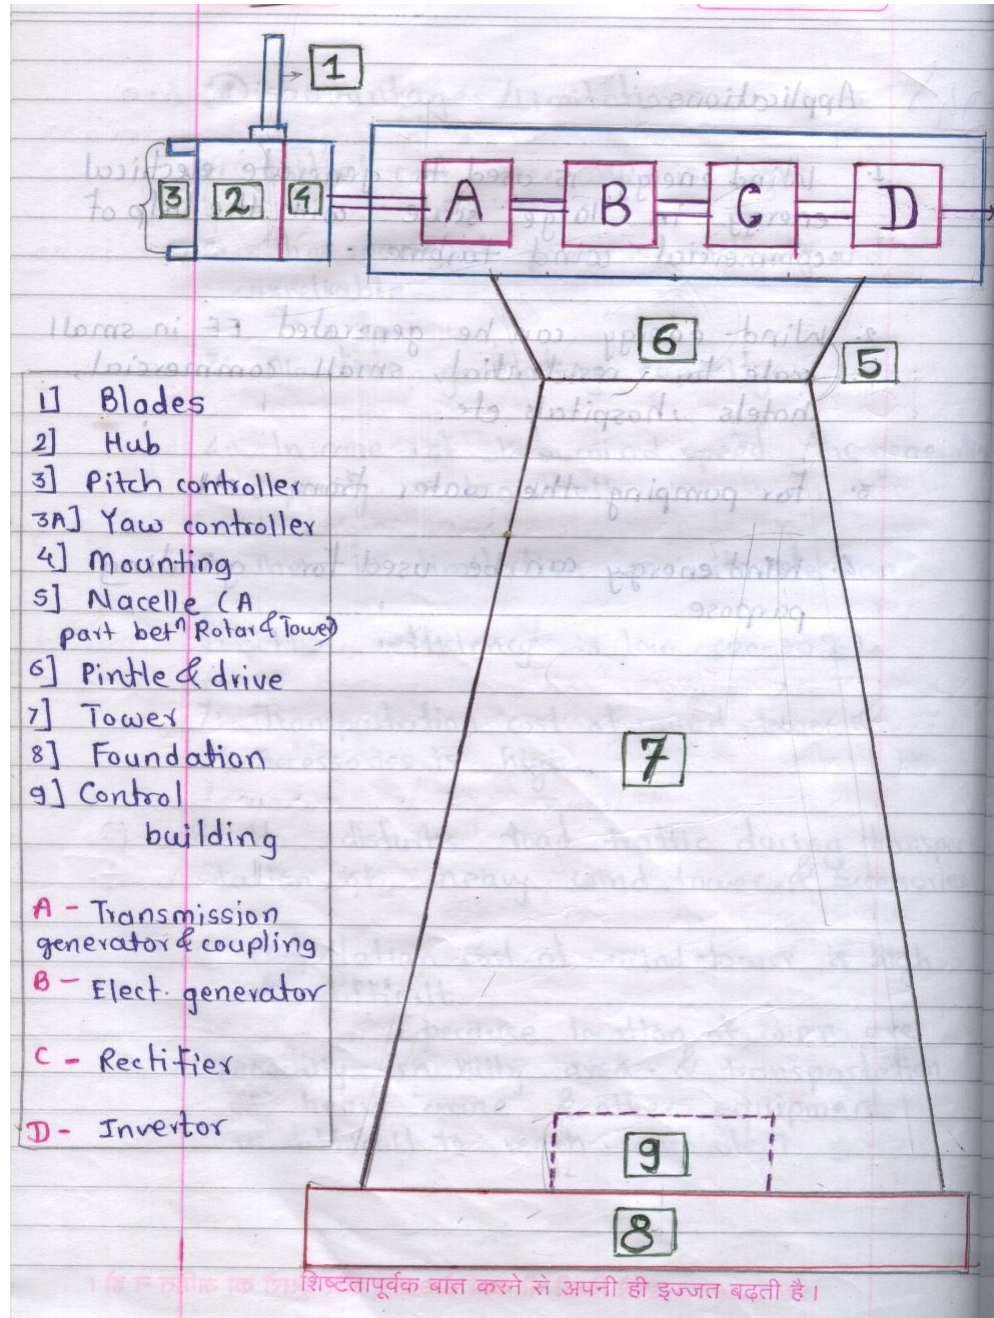 1
3 2 4 A B C D
6
5
1] Blades
2] Hub
3] Pitch controller
3A] Yaw controller
4] Mounting
5] Nacelle (A
part betⁿ Rotar & Tower)
6] Pintle & drive
7] Tower
8] Foundation
9] Control
building
A - Transmission
generator & coupling
B - Elect. generator
C - Rectifier
D - Invertor
7
9
8
शिष्टतापूर्वक बात करने से अपनी ही इज्जत बढ़ती है।